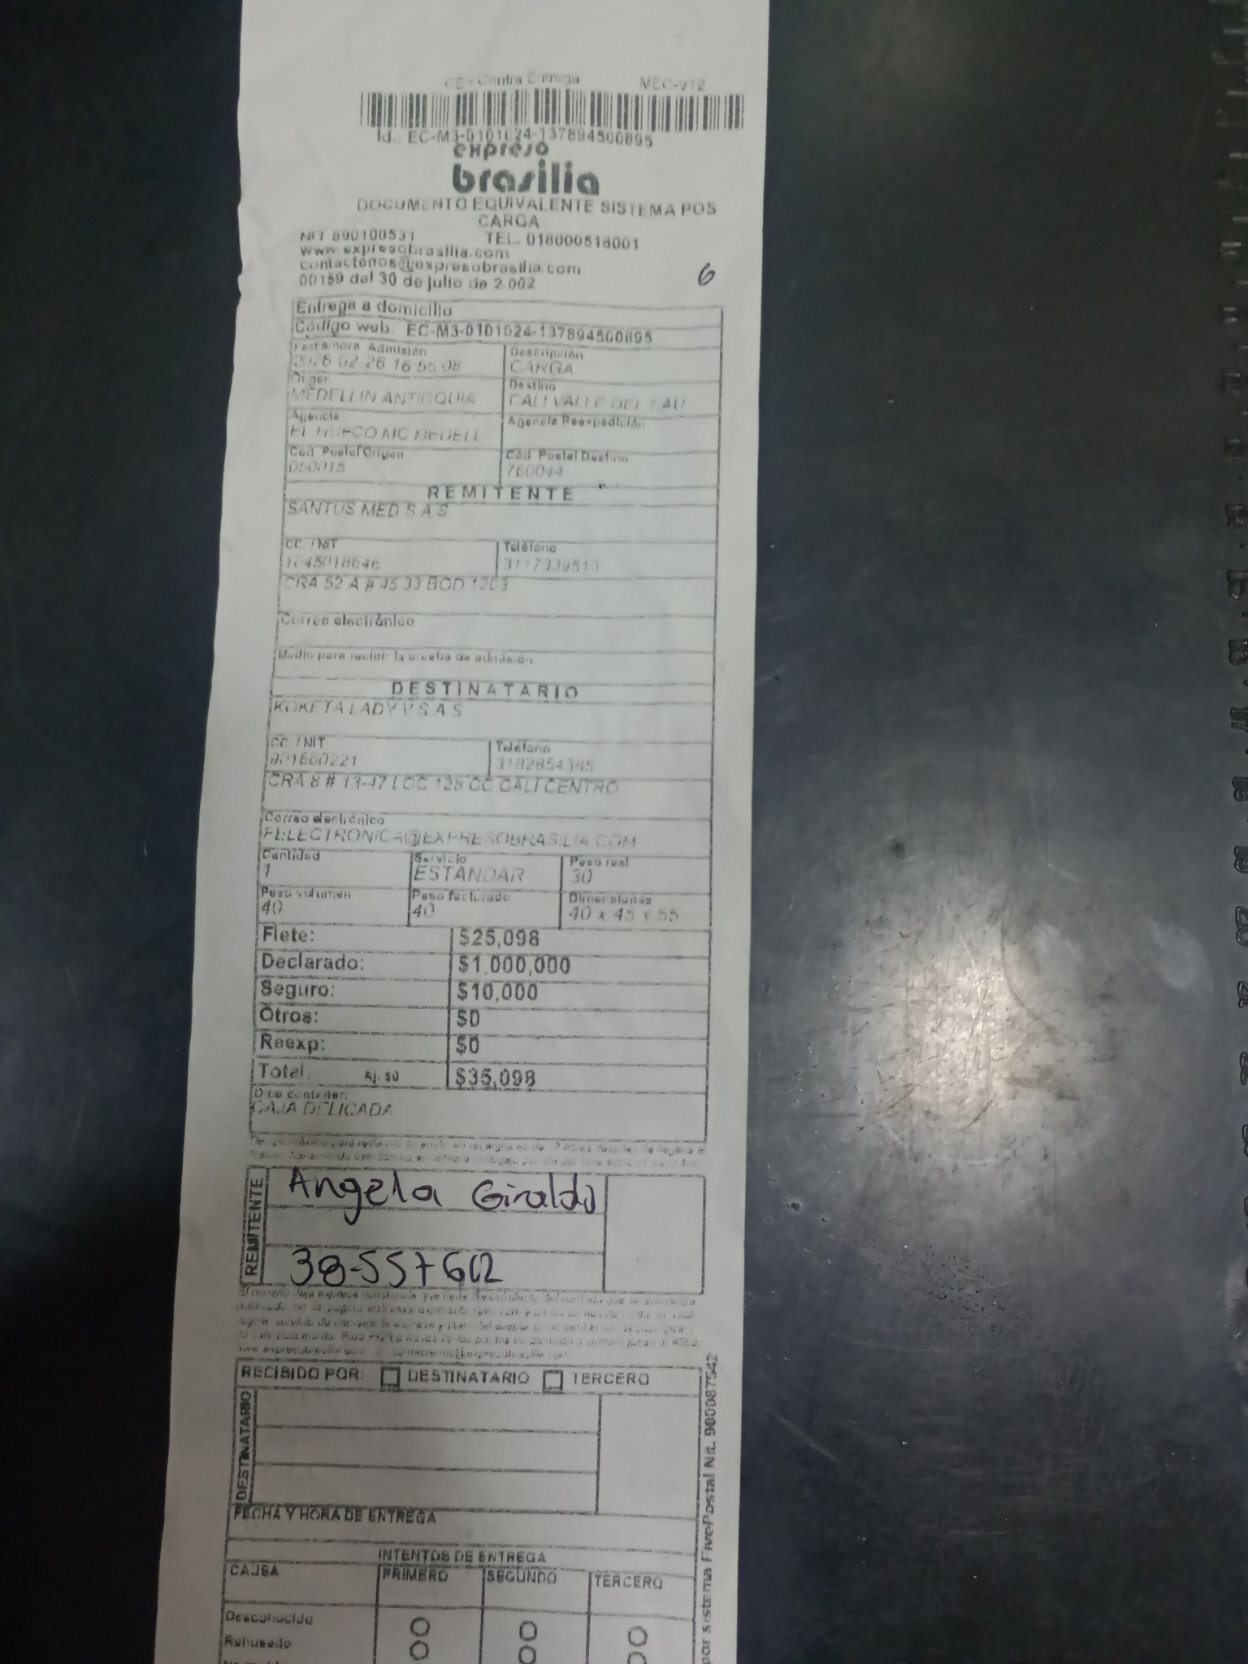 CE - Contra Entrega MEC-V12
Id.: EC-M3-0101024-137894500895
expreso
brasilia
DOCUMENTO EQUIVALENTE SISTEMA POS
CARGA
NIT 890100531 TEL. 018000518001
www.expresobrasilia.com
contactenos@expresobrasilia.com
00159 del 30 de julio de 2.002
6
Entrega a domicilio
Código web: EC-M3-0101024-137894500895
Fecha/hora Admisión Descripción
2026 02 26 16:55:08 CARGA
Origen Destino
MEDELLIN ANTIOQUIA CALI VALLE DEL CAU
Agencia Agencia Reexpedición
EL HUECO MC MEDELL
Cód. Postal Origen Cód. Postal Destino
050015 760044
REMITENTE
SANTUS MED S A S
CC. / NIT Teléfono
3117339511
CRA 52 A # 45 33 BOD 1203
Correo electrónico
Medio para recibir la prueba de admisión
DESTINATARIO
KOKETA LADY V S A S
CC. / NIT Teléfono
901660221 3182854385
CRA 8 # 13-47 LOC 128 CC CALI CENTRO
Correo electrónico
FELECTRONICA@EXPRESOBRASILIA.COM
Cantidad Servicio Peso real
1 ESTANDAR 30
Peso volumen Peso facturado Dimensiones
40 40 40 x 45 x 55
Flete: $25,098
Declarado: $1,000,000
Seguro: $10,000
Otros: $0
Reexp: $0
Total. Aj. $0 $35,098
Dice contener:
CAJA DELICADA
REMITENTE
Angela Giraldo
38-557602
RECIBIDO POR: DESTINATARIO TERCERO
DESTINATARIO
FECHA Y HORA DE ENTREGA
INTENTOS DE ENTREGA
CAUSA PRIMERO SEGUNDO TERCERO
Desconocido
Rehusado
por sistema FivePostal Nit. 900087542